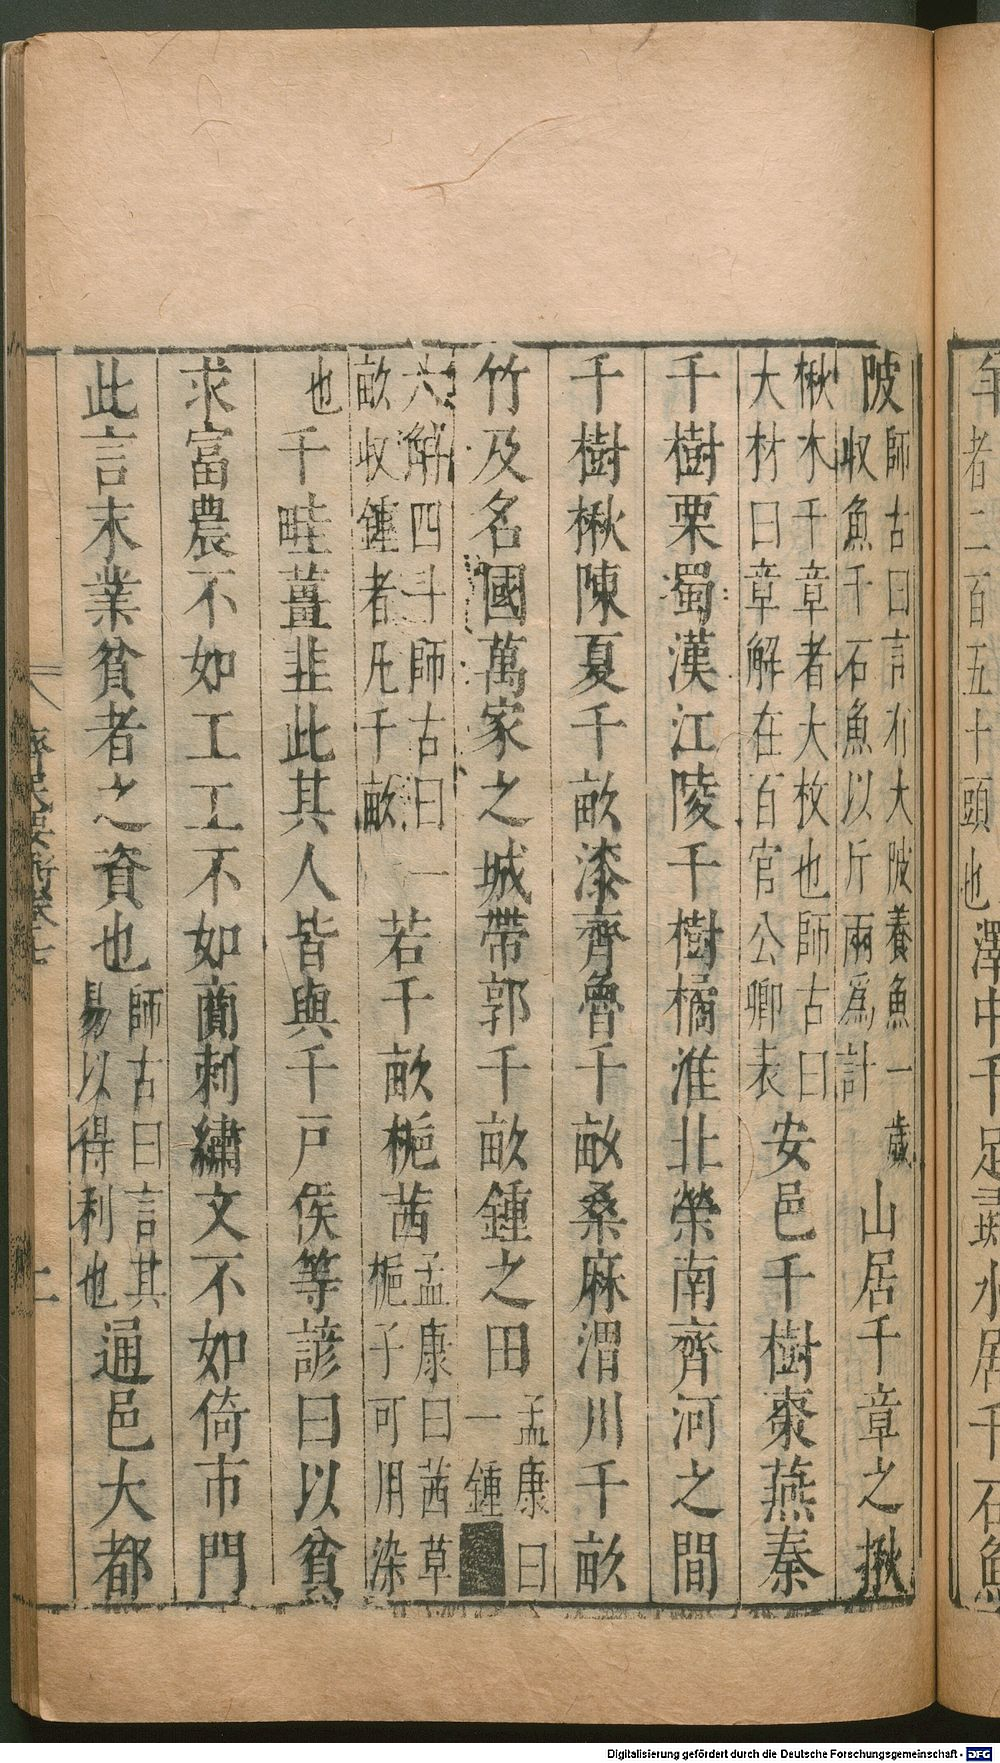 年者二百五十頭也澤中千足彘水居千石魚
陂師古曰言有大陂養魚一歲
收魚千石魚以斤兩爲計山居千章之楸
楸木千章者大枚也師古曰
大材曰章解在百官公卿表安邑千樹棗燕秦
千樹栗蜀漢江陵千樹橘淮北榮南齊河之間
千樹楸陳夏千畝漆齊魯千畝桑麻渭川千畝
竹及名國萬家之城帶郭千畝鍾之田孟康曰
一鍾
六解四斗師古曰一
畝收鍾者凡千畝若千畝梔茜孟康曰茜草
梔子可用染
也千畦薑韭此其人皆與千戸侯等諺曰以貧
求富農不如工工不如商刺繡文不如倚市門
此言末業貧者之資也師古曰言其
易以得利也通邑大都
齊民要術卷七
二
Digitalisierung gefördert durch die Deutsche Forschungsgemeinschaft - DFG